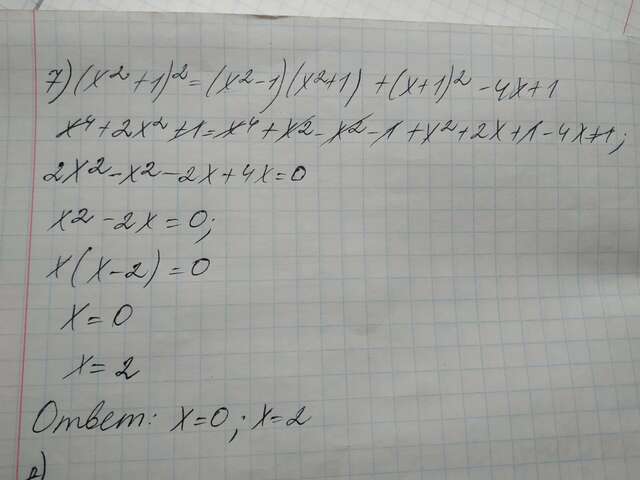 7) (x² + 1)² = (x² - 1)(x² + 1) + (x + 1)² - 4x + 1
x⁴ + 2x² + 1 = x⁴ + x² - x² - 1 + x² + 2x + 1 - 4x + 1;
2x² - x² - 2x + 4x = 0
x² - 2x = 0;
x(x - 2) = 0
x = 0
x = 2
Ответ: x = 0; x = 2